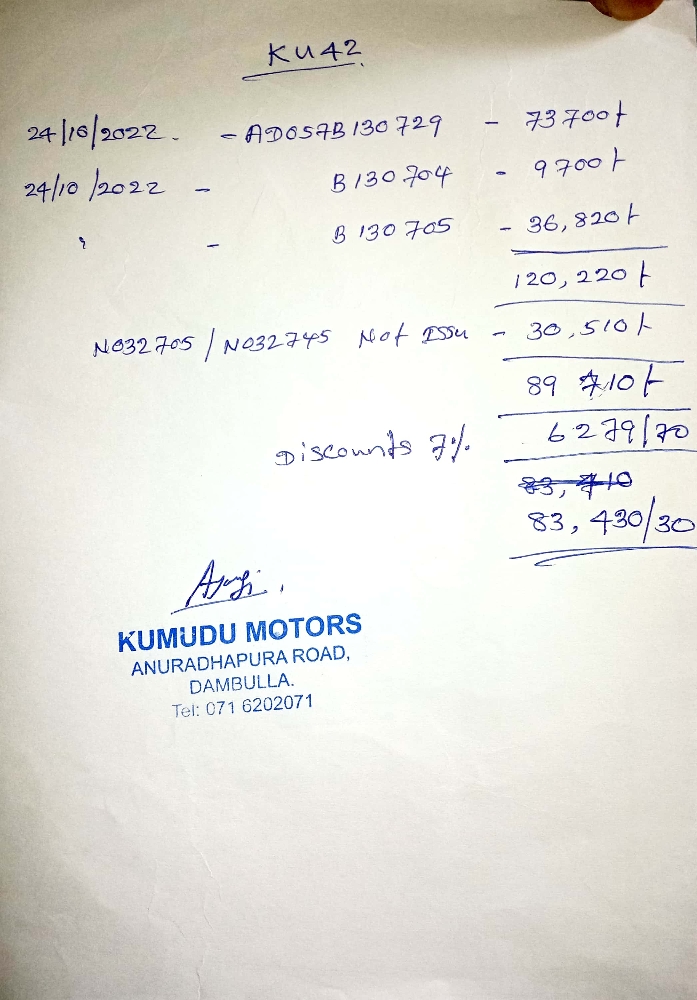 KU42.
24/10/2022. - AD057B130729 - 73700/-
24/10/2022 - B130704 - 9700/-
" - B130705 - 36,820/-
120,220/-
N032705/N032745 Not Issu - 30,510/-
89 710/-
Discounts 7% 6279/70
83,710
83,430/30
KUMUDU MOTORS
ANURADHAPURA ROAD,
DAMBULLA.
Tel: 071 6202071